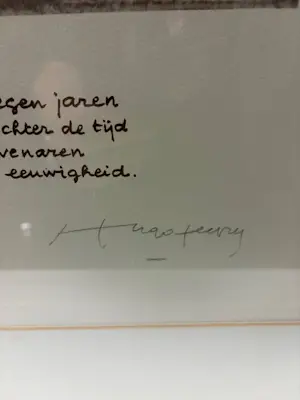 egen jaren
chter de tijd
venaren
eeuwigheid.